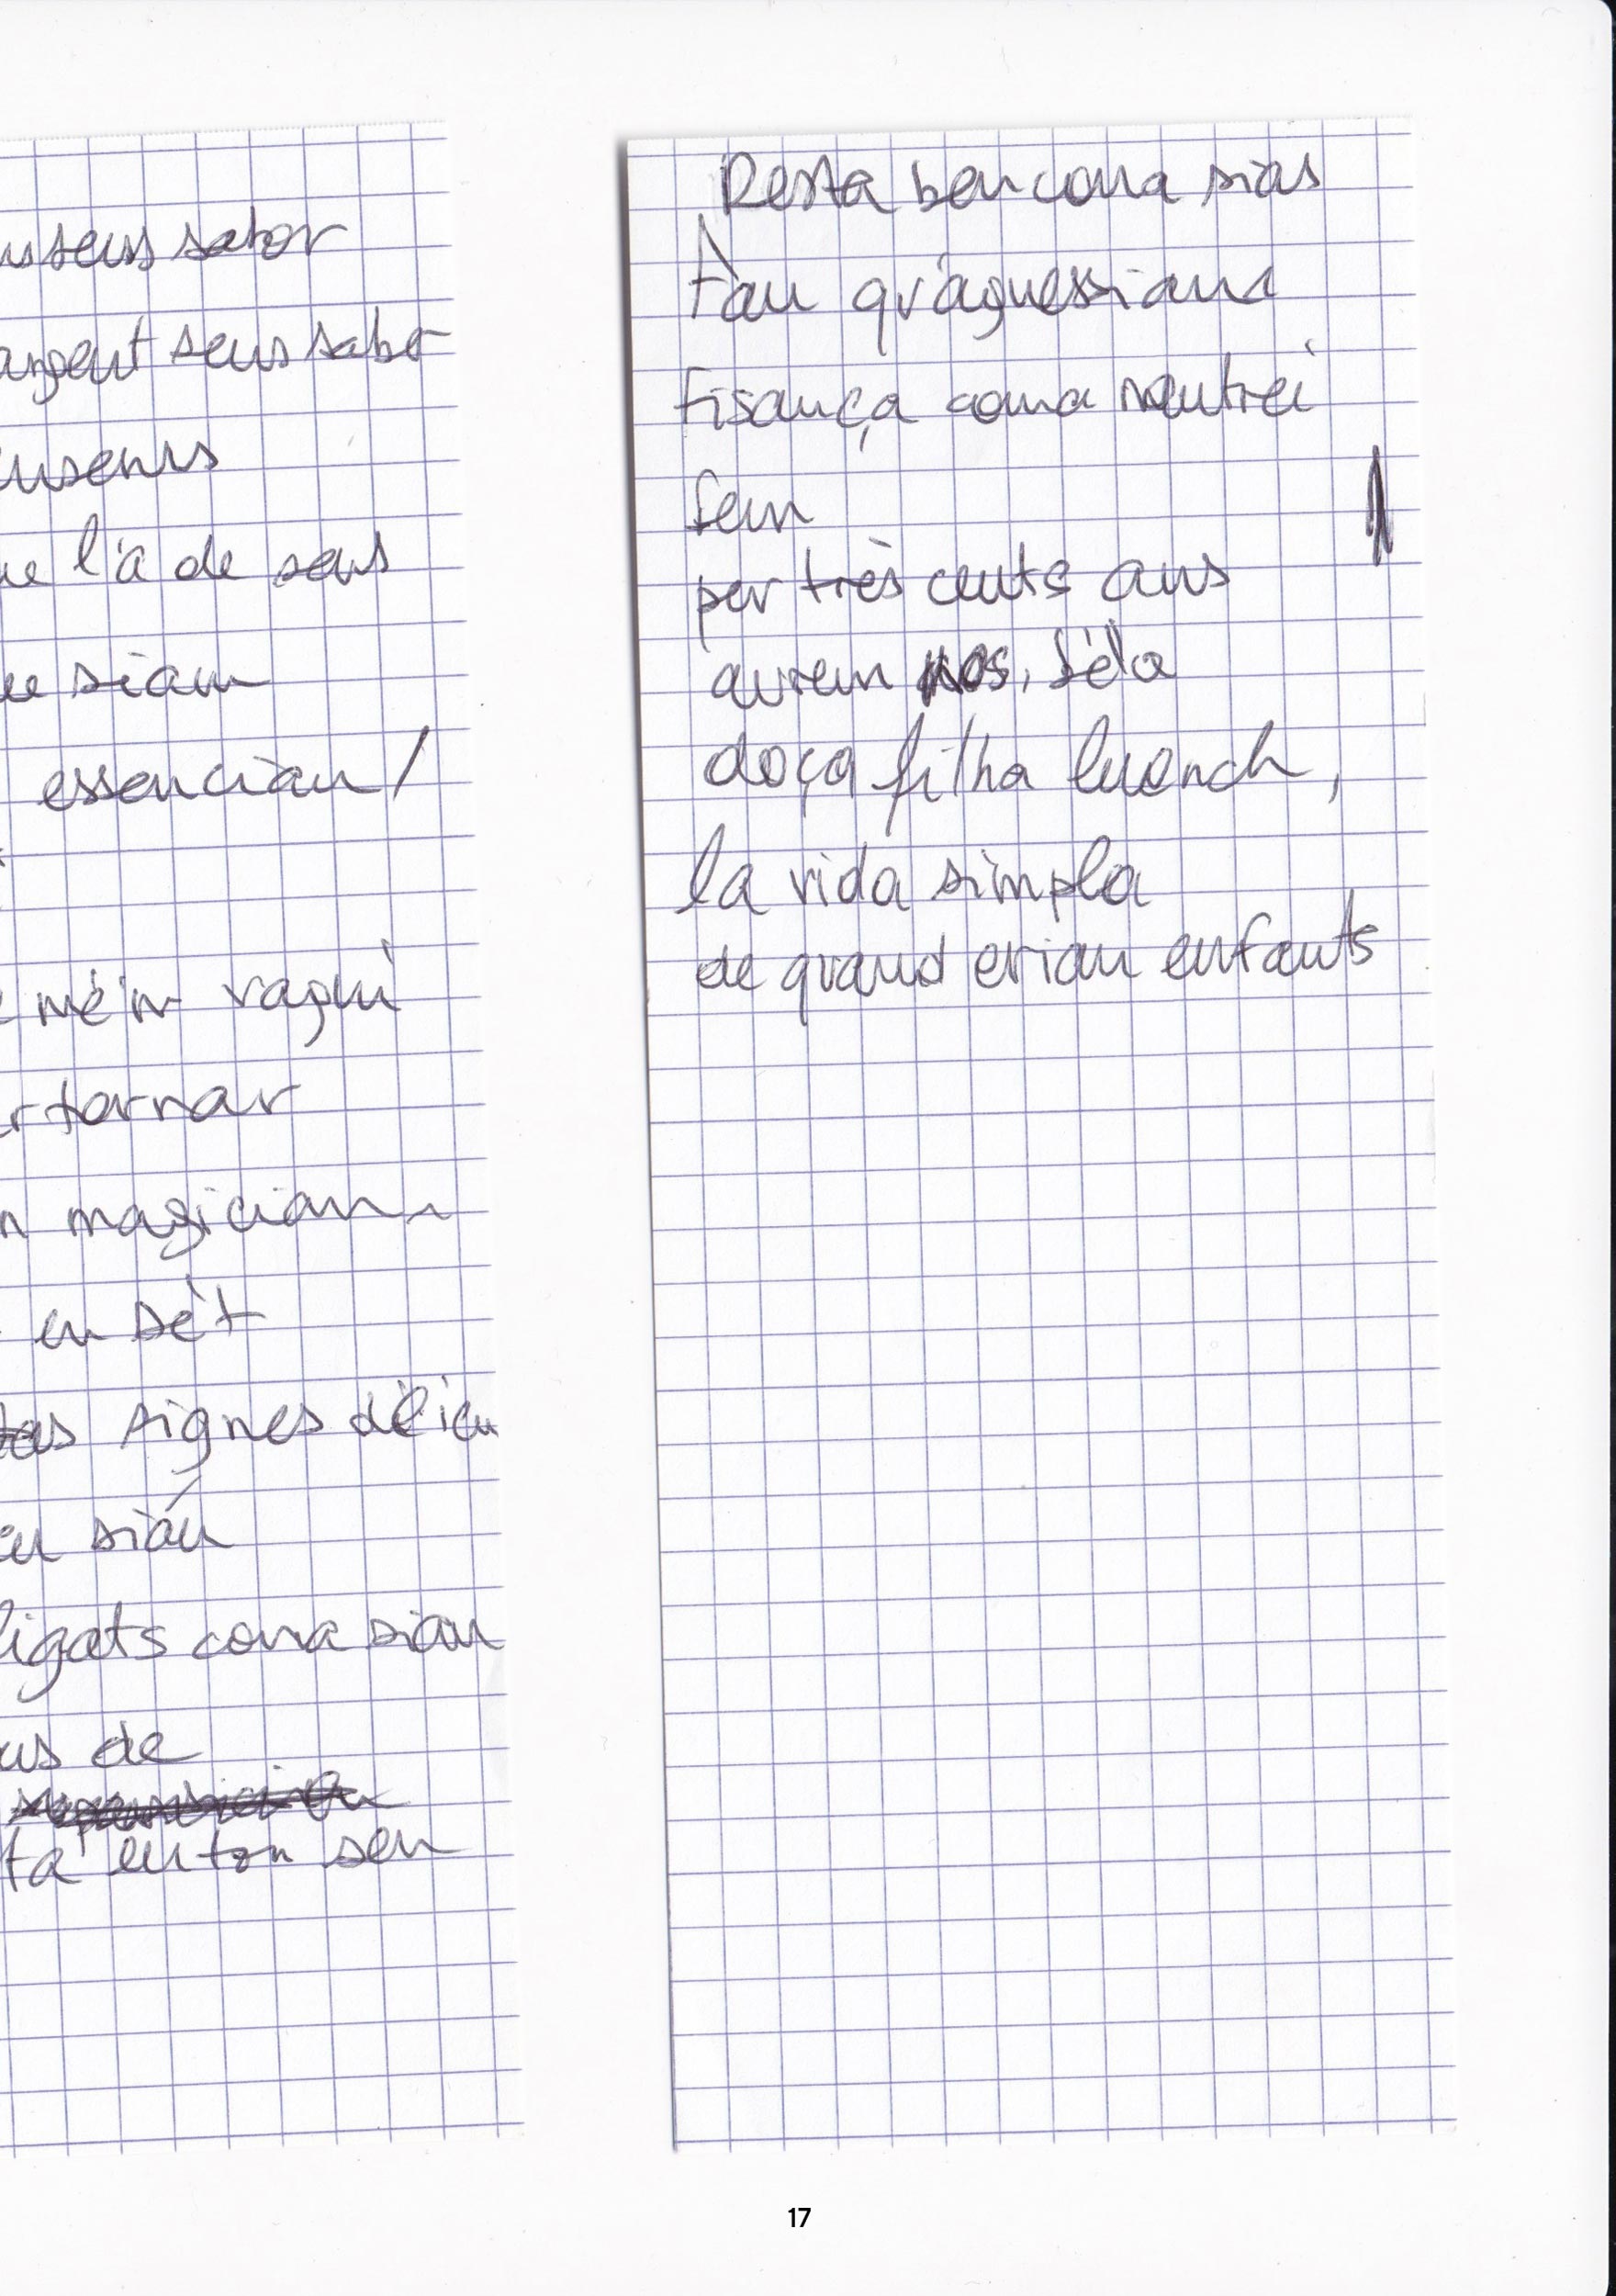 sens sabor
argent sens sabo
l'a de sens
siam
essenciau /
me'n vagui
tornar
magician
en sèt
signes dei
siáu
ligats coma siam
de
ta en ton sen
Resta ben coma sias
Fau qu'aguessiam
fisança coma nautrei
fem
per três cents ans
aurem nos, Sèla
doça filha luench,
la vida simpla
de quand eriam enfants
17